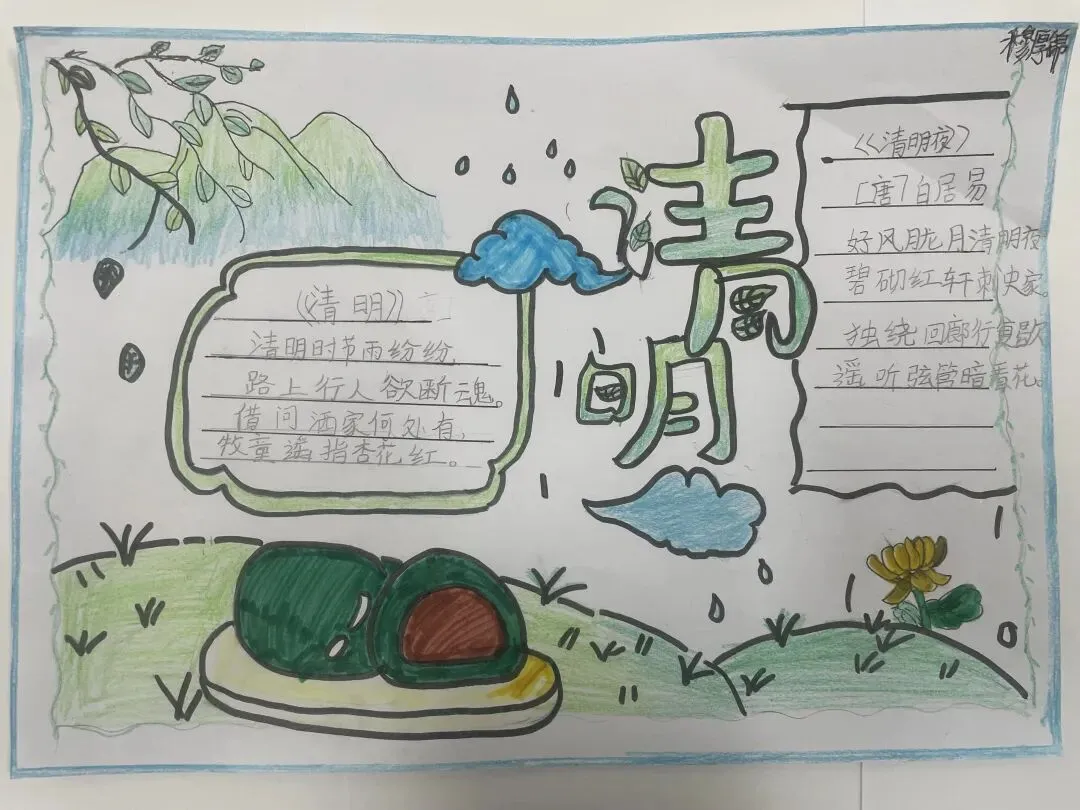 清明
《清明》
清明时节雨纷纷,
路上行人欲断魂。
借问洒家何处有,
牧童遥指杏花红。
《清明夜》
[唐]白居易
好风胧月清明夜
碧砌红轩刺史家。
独绕回廊行复歇
遥听弦管暗看花。